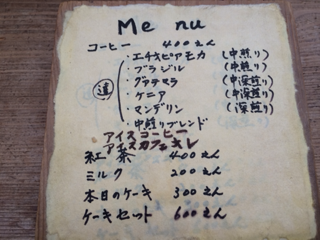 Me nu
コーヒー 400えん
・エチオピアモカ (中煎り)
・ブラジル (中煎り)
・グァテマラ (中深煎り)
・ケニア (中深煎り)
・マンデリン (深煎り)
・中煎りブレンド
アイスコーヒー
アイスカフェオレ
紅茶 400えん
ミルク 200えん
本日のケーキ 300えん
ケーキセット 600えん